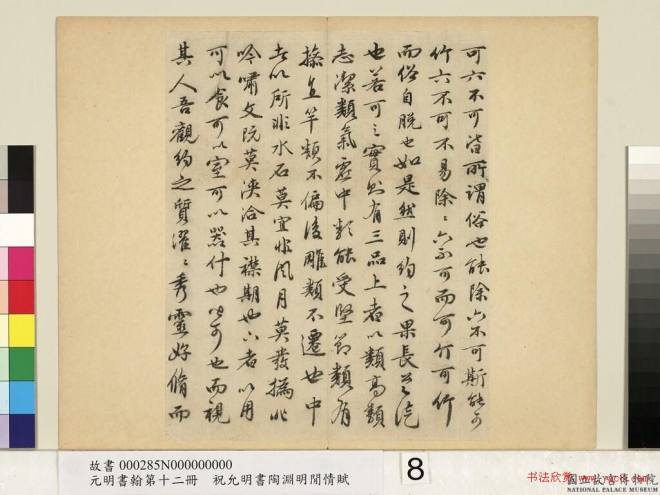 可六不可皆所謂俗也能除六不可斯能可
竹六不可不易除除六不可而可竹可竹
而俗自脫也如是然則約之果長之
也若可之實則有三品上者以類高類
志潔類氣虛中類能受堅節類有
操直竿類不偏後雕類不遷也中
者以所非水石莫宜非風月莫發撝非
吟嘯文阮莫浹洽其襟期也下者以用
可以食可以室可以器什也也而視
其人吾觀約之質濯濯秀靈好脩而
故書 000285N000000000
元明書翰第十二冊 祝允明書陶淵明閒情賦
8
书法欣赏
國立故宮博物院
NATIONAL PALACE MUSEUM